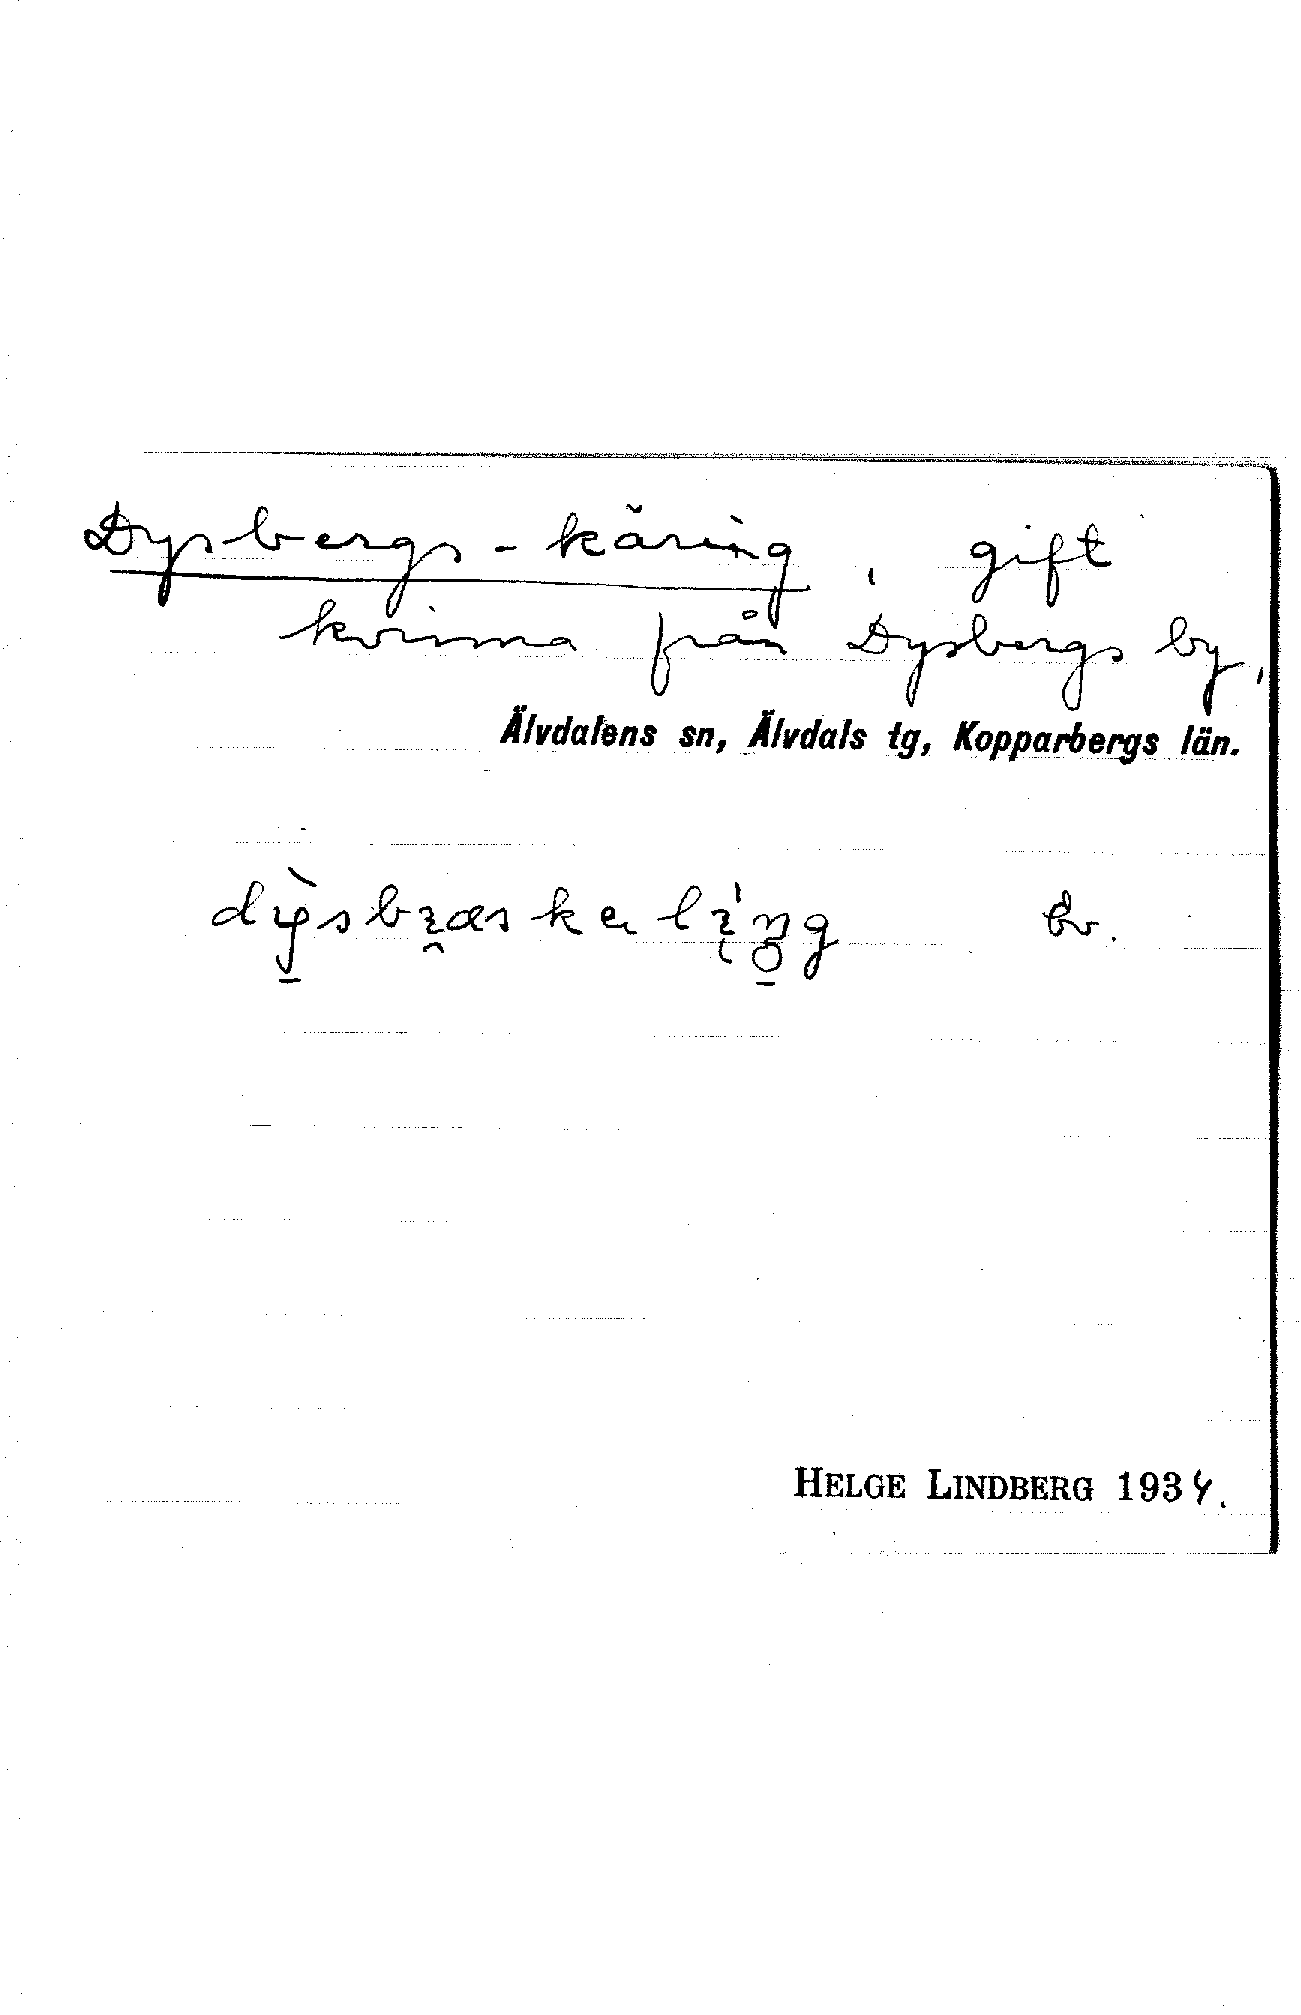 Dysbergs-käring, gift
kvinna från Dysbergs by,
Älvdalens sn, Älvdals tg, Kopparbergs län.
HELGE LINDBERG 1934.